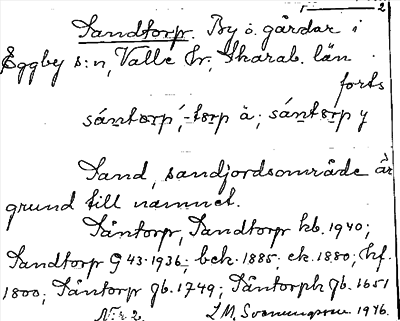 1 2
Sandtorp. By o. gårdar i
Eggby s:n, Valle hr, Skarab. län
forts
sántorp, -torp à; sántorp y
Sand, sandjordsområde är
grund till namnet.
Säntorp, Sandtorp kb. 1940;
Sandtorp G 43-1936; bek. 1885; ek. 1880; hf.
1800; Säntorp gb. 1749; Säntorph gb. 1651
N:r 2. 1946.